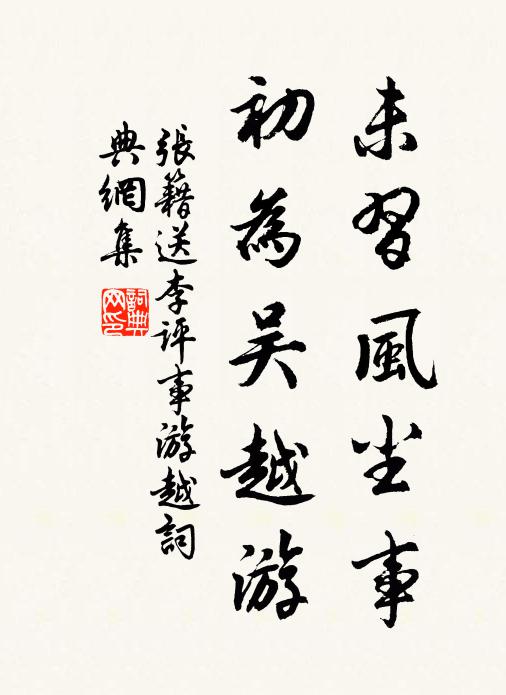 未習風尘事
初為吴越游
張籍送李评事游越詞
典網集
詞典
网印